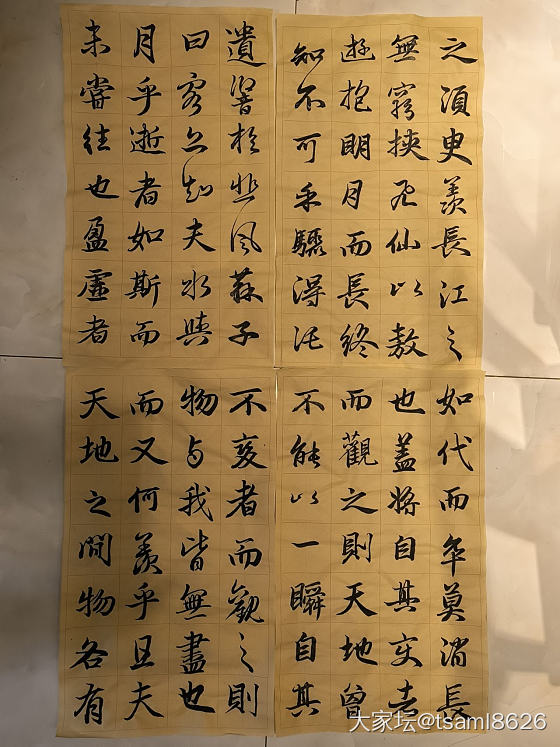 之須臾羨長江之
無窮挾飛仙以敖
遊抱明月而長終
知不可乎驟得託
遺響於悲風蘇子
曰客亦知夫水與
月乎逝者如斯而
未嘗往也盈虛者
如代而卒莫消長
也蓋將自其變者
而觀之則天地曾
不能以一瞬自其
不變者而觀之則
物与我皆無盡也
而又何羨乎且夫
天地之間物各有
大家坛@tsaml8626